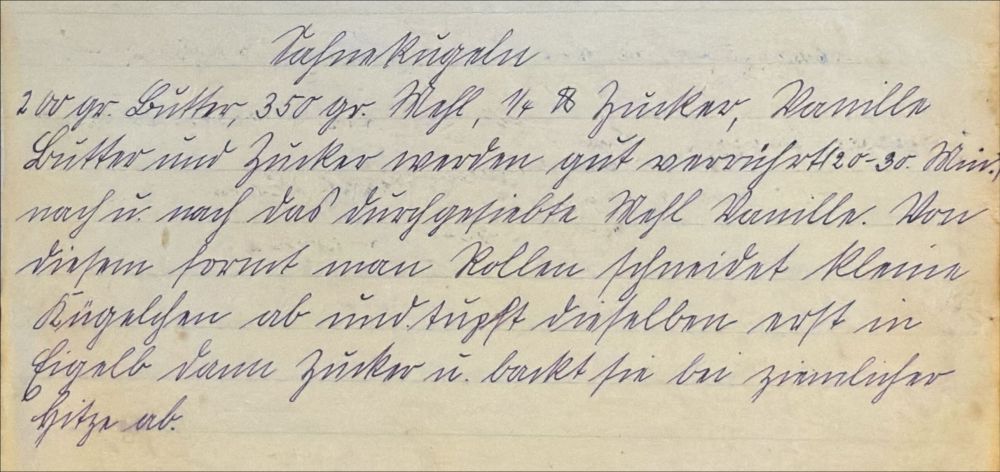 Sahnekugeln
200 gr. Butter, 350 gr. Mehl, 1/4 ℔ Zucker, Vanille
Butter und Zucker werden gut verrührt (20-30. Min.)
nach u. nach das durchgesiebte Mehl Vanille. Von
diesem formt man Rollen schneidet kleine
Kügelchen ab und tupft dieselben erst in
Eigelb dann Zucker u. backt sie bei ziemlicher
Hitze ab.